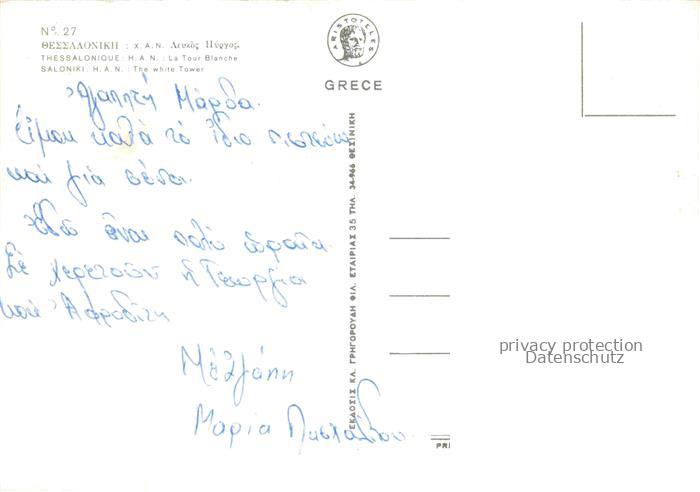 Νο. 27
ΘΕΣΣΑΛΟΝΙΚΗ : Χ.Α.Ν. Λευκός Πύργος.
THESSALONIQUE : H.A.N. : La Tour Blanche
SALONIKI : H.A.N. : The white Tower
ARISTOTELES
GRECE
Ἀγαπητή Μάγδα.
Εἶμαι καλά τό ἴδιο πιστεύω
καί γιά σένα.
Ἐδῶ εἶναι πολύ ὡραῖα.
Σέ χερετοῦν ἡ Γεωργία
καί Ἀφροδίτη
Μέ ἀγάπη
Μαρία
ΕΚΔΟΣΙΣ ΚΛ. ΓΡΗΓΟΡΟΥΔΗ ΦΙΛ. ΕΤΑΙΡΙΑΣ 35 ΤΗΛ. 34-966 ΘΕΣ/ΝΙΚΗ
privacy protection
Datenschutz
PRI